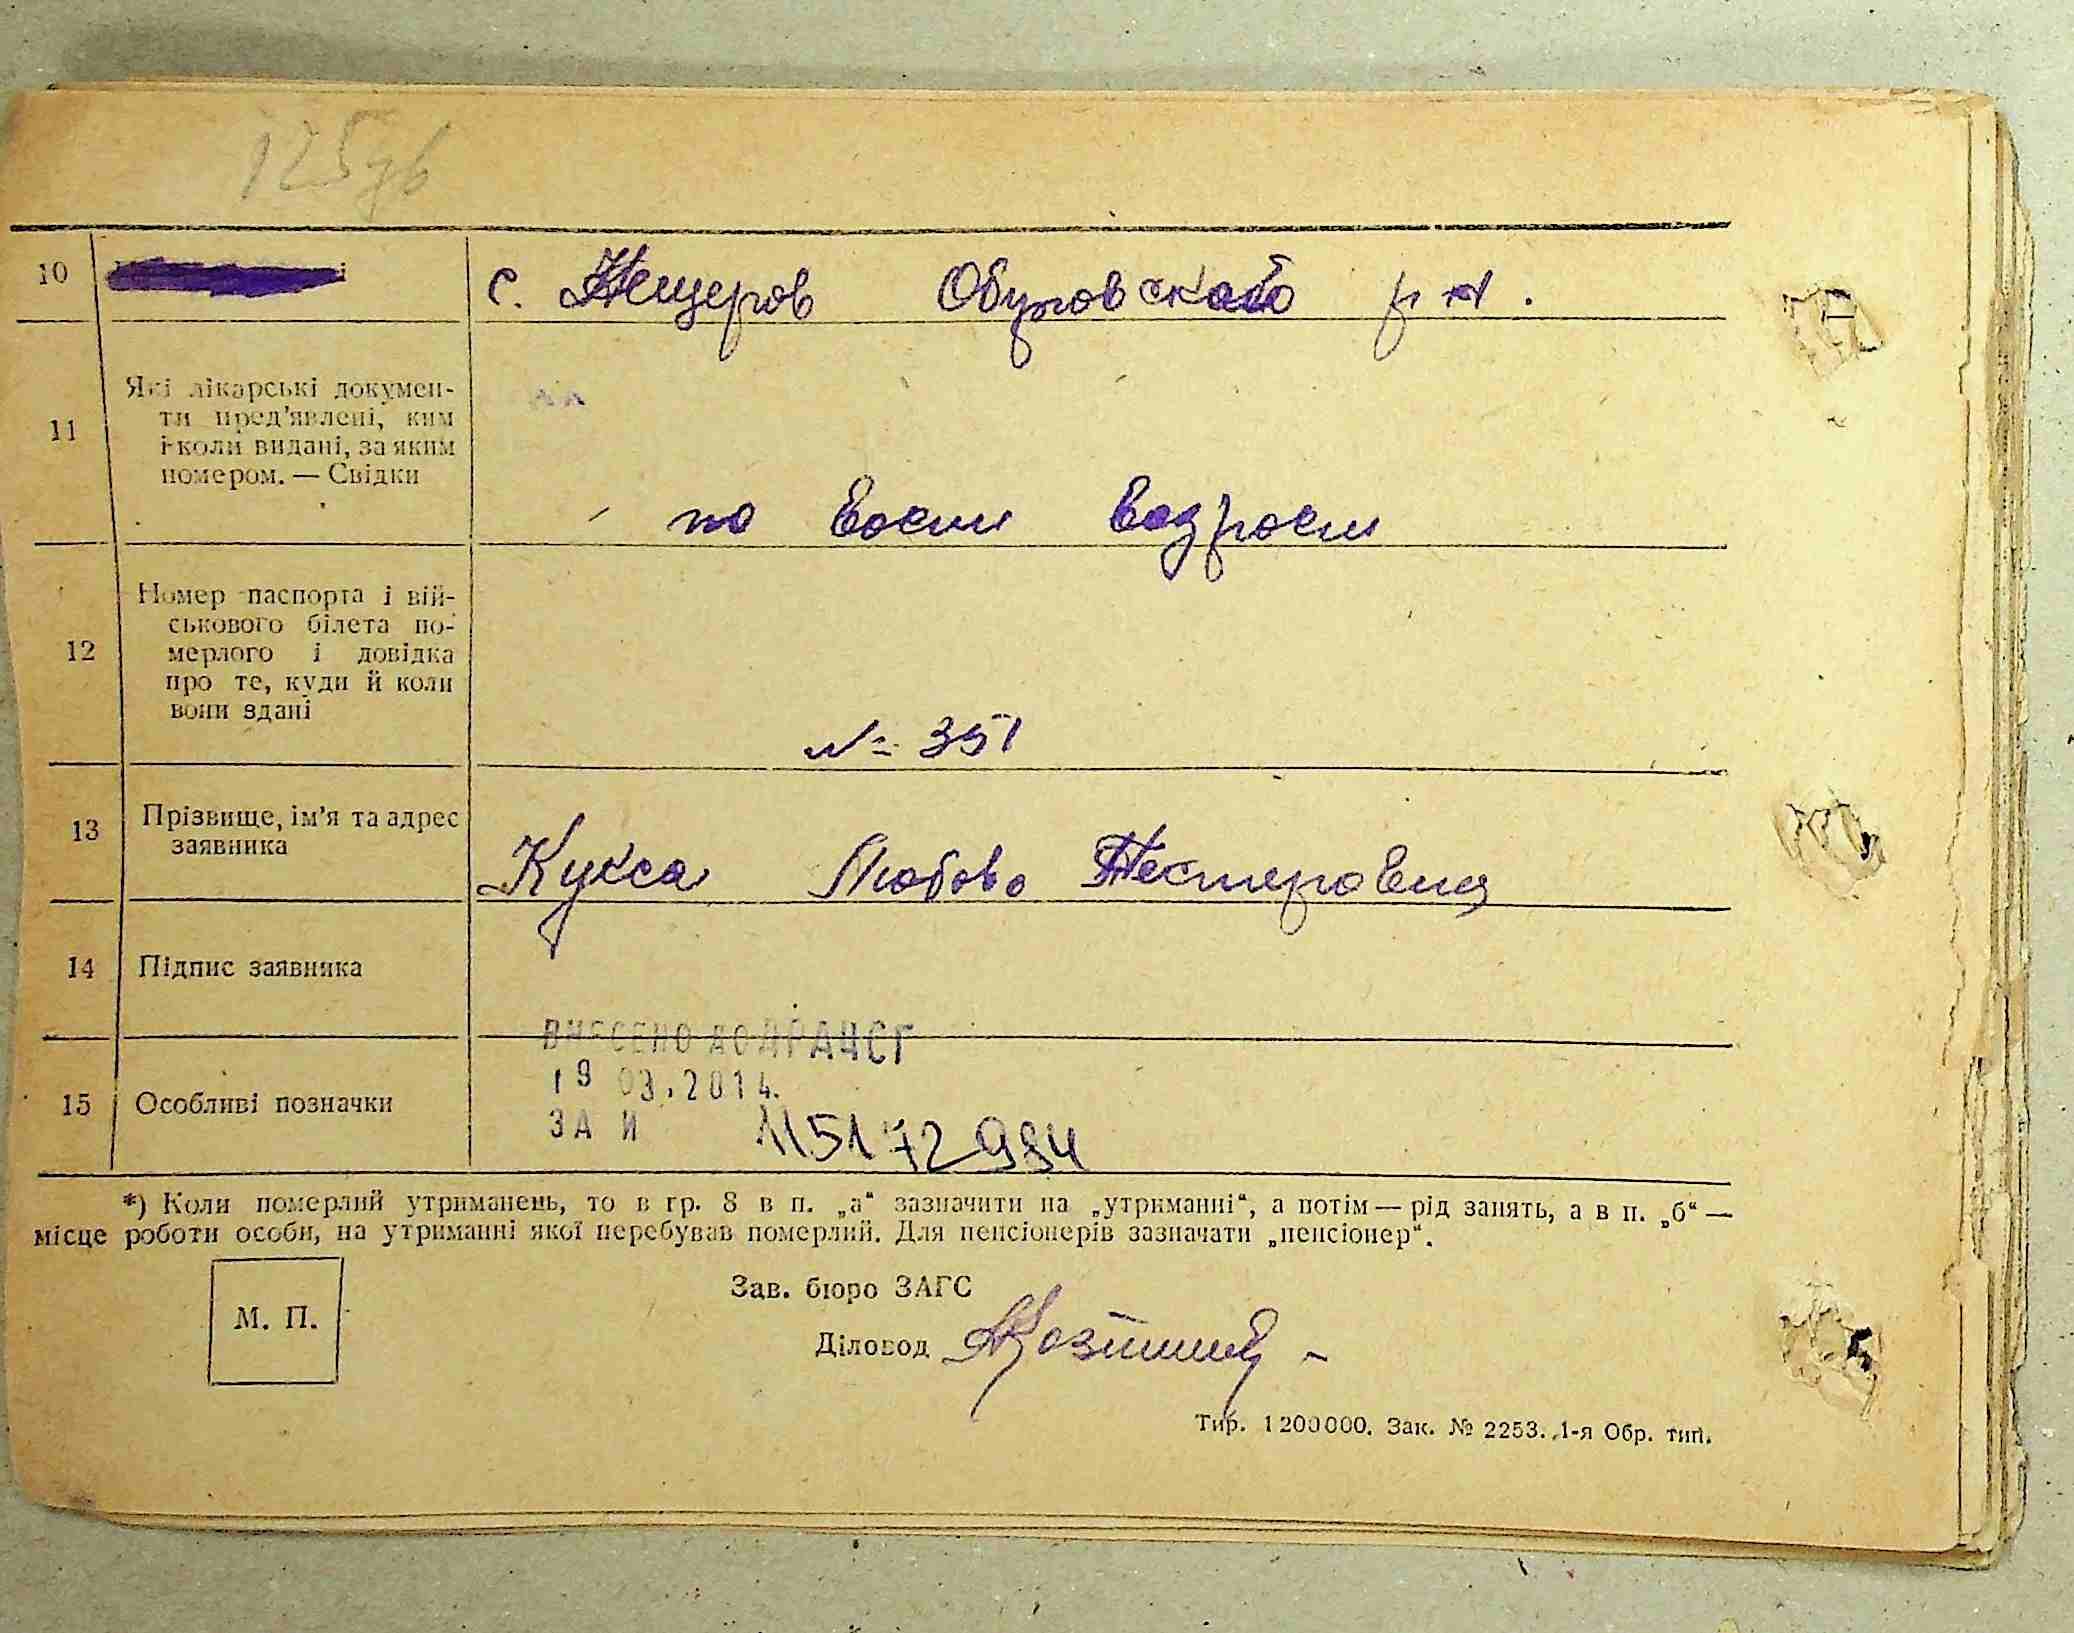 125зв
10
с. Нещеров Обуховского р-н.
11 Які лікарські докумен-
ти пред'явлені, ким
і коли видані, за яким
номером. — Свідки
по
12 Номер паспорта і вій-
ськового білета по-
мерлого і довідка
про те, куди й коли
вони здані
№ 351
13 Прізвище, ім'я та адрес
заявника
Кукса Любовь Нестеровна
14 Підпис заявника
ВНЕСЕНО ДО ДРАЦСГ
19 03.2014.
15 Особливі позначки
ЗА N 115172984
*) Коли померлий утриманець, то в гр. 8 в п. „а“ зазначити на „утриманні“, а потім — рід занять, а в п. „б“ —
місце роботи особи, на утриманні якої перебував померлий. Для пенсіонерів зазначати „пенсіонер“.
М. П.
Зав. бюро ЗАГС
Діловод
Тир. 1200000. Зак. № 2253. 1-я Обр. тип.